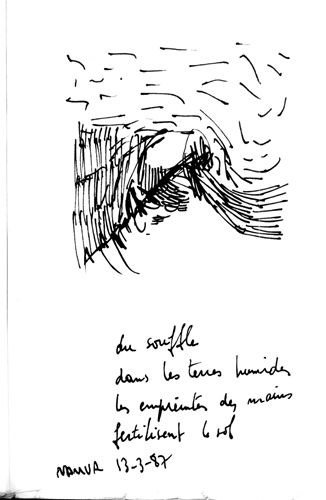 du souffle
dans les terres humides
les empreintes des mains
fertilisent le sol
13-3-87